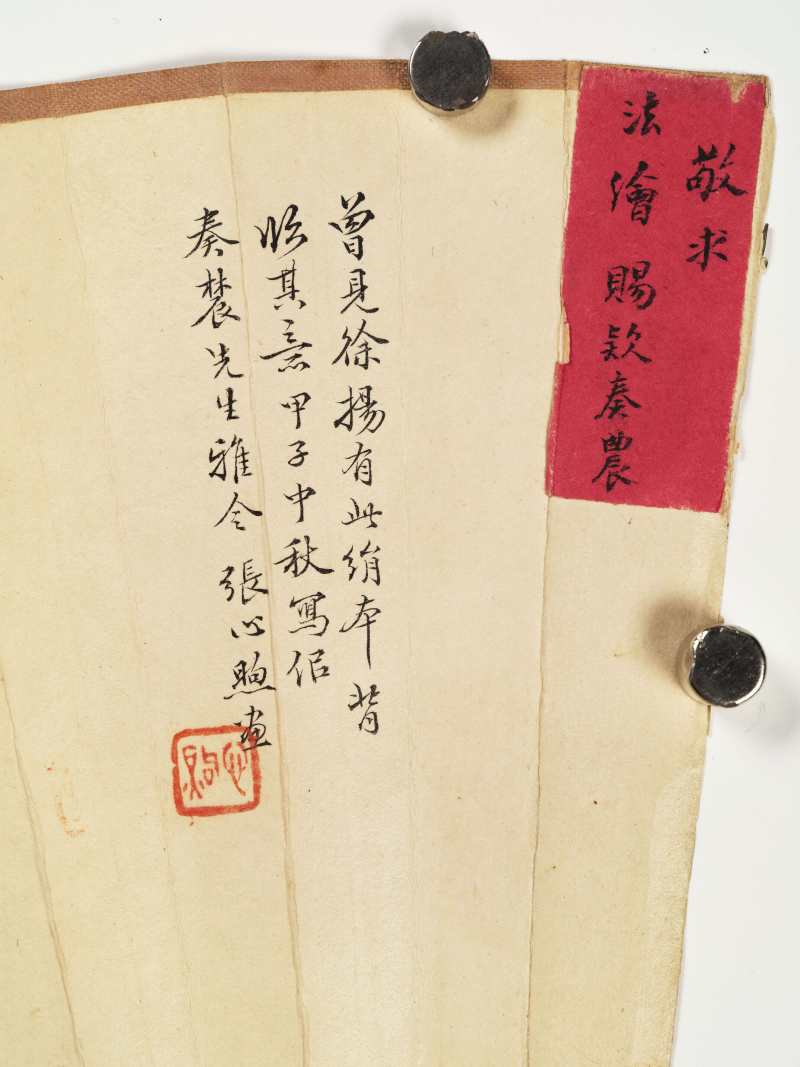 敬求
法繪 賜款奏農
曾見徐揚有此絹本背
臨其意甲子中秋寫佀
奏農先生雅令 張心煦畫
心煦